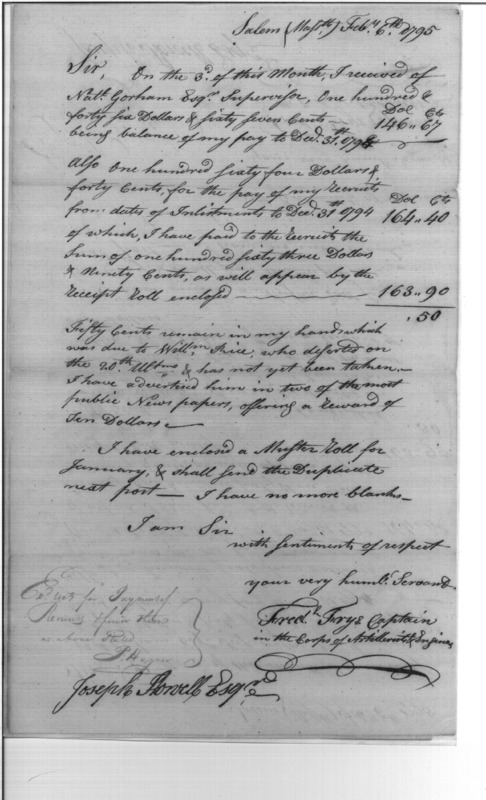 Salem (Massts) Feby 6th 1795
Sir, On the 3d of this Month, I received of
Natl. Gorham Esqr Supervisor, One hundred &
forty six Dollars & sixty seven Cents — Dol Cts 146 " 67
being balance of my pay to Decr. 31st. 1794
Also One hundred sixty four Dollars &
forty Cents, for the pay of my Recruits
from dates of Inlistments to Decr. 31st 1794 Dol Cts 164 " 40
of which, I have paid to the Recruits the
Sum of one hundred sixty three Dollars
& Ninety Cents, as will appear by the
Receipt Roll enclosed — 163 " 90
" 50
Fifty Cents remain in my hand, which
was due to Willm Price, who deserted on
the 20th Ultmo & has not yet been taken. —
I have advertised him in two of the most
public News papers, offering a Reward of
Ten Dollars —
I have enclosed a Muster Roll for
January, & shall send the Duplicate
next post — I have no more blanks —
I am Sir
with sentiments of respect
your very humbl. Servant
Fredk Frye Captain
in the Corps of Artillerists & Engineers
for Payment
as above
Joseph Howell Esqre